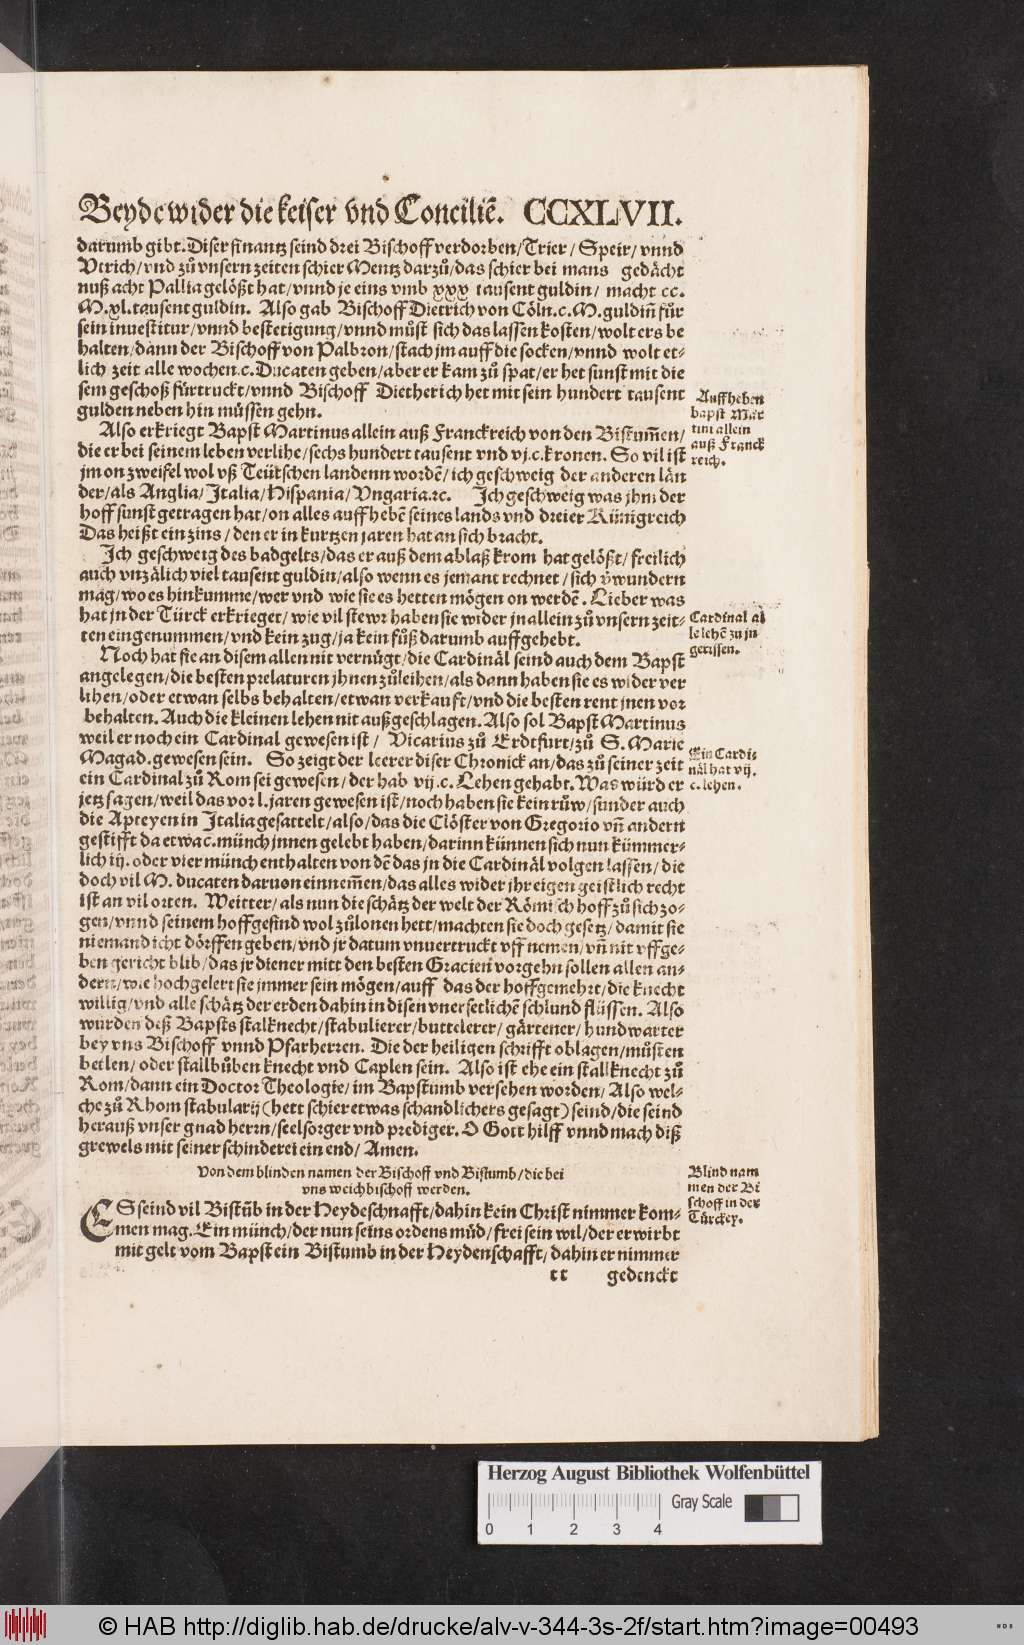 Beyde wider die keiser vnd Conciliẽ. CCXLVII.
darumb gibt. Diser finantz seind drei Bischoff verdorben/Trier/ Speir/ vnnd
Vtrich/vnd zů vnsern zeiten schier Mentz darzů/das schier bei mans gedächt
nuß acht Pallia gelößt hat/vnnd je eins vmb xxx tausent guldin/ macht cc.
M.xl.tausent guldin. Also gab Bischoff Dietrich von Cöln.c.M.guldiñ für
sein inuestitur/vnnd bestetigung/vnnd můst sich das lassen kosten/wolt ers be
halten/dann der Bischoff von Palbron/stach jm auff die socken/vnnd wolt et-
lich zeit alle wochen.c.Ducaten geben/aber er kam zů spat/er het sunst mit die
sem geschoß fürtruckt/vnnd Bischoff Dietherich het mit sein hundert tausent
gulden neben hin müssen gehn.
Auffheben
bapst Mar
tini allein
auß Franck
reich.
Also erkriegt Bapst Martinus allein auß Franckreich von den Bistum̃en/
die er bei seinem leben verlihe/sechs hundert tausent vnd vj.c.kronen. So vil ist
jm on zweifel wol vß Teütschen landenn wordẽ/ich geschweig der anderen län
der/als Anglia/Italia/Hispania/Vngaria.ꝛc. Ich geschweig was jhm der
hoff sunst getragen hat/on alles auffhebẽ seines lands vnd dreier Künigreich
Das heißt ein zins/den er in kurtzen jaren hat an sich bracht.
Ich geschweig des badgelts/das er auß dem ablaß krom hat gelößt/freilich
auch vnzälich viel tausent guldin/also wenn es jemant rechnet/sich v̊wundern
mag/wo es hinkumme/wer vnd wie sie es hetten mögen on werdẽ. Lieber was
hat jn der Türck erkrieget/wie vil stewr haben sie wider jn allein zů vnsern zeit-
ten eingenummen/vnd kein zug/ja kein fůß darumb auffgehebt.
Cardinal al
le lehẽ zu jn
gerissen.
Noch hat sie an disem allen nit vernügt/die Cardinäl seind auch dem Bapst
angelegen/die besten prelaturen jhnen zůleihen/als dann haben sie es wider ver
lihen/oder etwan selbs behalten/etwan verkauft/vnd die besten rent jnen vor
behalten. Auch die kleinen lehen nit außgeschlagen. Also sol Bapst Martinus
weil er noch ein Cardinal gewesen ist/ Vicarius zů Erdtfurt/zů S. Marie
Magad.gewesen sein. So zeigt der leerer diser Chronick an/das zů seiner zeit
ein Cardinal zů Rom sei gewesen/der hab vij.c. Lehen gehabt. Was würd er
Ein Cardi-
näl hat vij.
c.lehen.
jetz sagen/weil das vor l.jaren gewesen ist/noch haben sie kein růw/sunder auch
die Apteyen in Italia gesattelt/also/das die Clöster von Gregorio vñ andern
gestifft da etwa c.münch jnnen gelebt haben/darinn künnen sich nun kümmer-
lich iij.oder vier münch enthalten von dẽ das jn die Cardinäl volgen lassen/die
doch vil M. ducaten daruon einnem̃en/das alles wider jhr eigen geistlich recht
ist an vil orten. Weitter/als nun die schätz der welt der Römisch hoff zů sich zo-
gen/vnnd seinem hoffgesind wol zůlonen hett/machten sie doch gesetz/damit sie
niemand icht dörffen geben/vnd jr datum vnuertruckt vff nemen/vñ nit vffge-
ben gericht blib/das jr diener mitt den besten Gracien vorgehn sollen allen an-
dern/wie hochgelert sie jmmer sein mögen/auff das der hoff gemehrt/die knecht
willig/vnd alle schätz der erden dahin in disen vnersetlichẽ schlund flüssen. Also
wurden deß Bapsts stalknecht/stabulierer/buttelerer/gärtener/hundwarter
bey vns Bischoff vnnd Pfarherren. Die der heiligen schrifft oblagen/můsten
betlen/oder stallbůben knecht vnd Caplen sein. Also ist ehe ein stallknecht zů
Rom/dann ein Doctor Theologie/im Bapstumb versehen worden/Also wel-
che zů Rhom stabularij (hett schier etwas schandlichers gesagt) seind/die seind
herauß vnser gnad herrn/seelsorger vnd prediger. O Gott hilff vnnd mach diß
grewels mit seiner schinderei ein end/Amen.
Von dem blinden namen der Bischoff vnd Bistumb/die bei
vns weichbischoff werden.
Blind nam
men der Bi
schoff in der
Türckey.
ES seind vil Bistũb in der Heydeschnafft/dahin kein Christ nimmer kom-
men mag. Ein münch/der nun seins ordens müd/frei sein wil/der erwirbt
mit gelt vom Bapst ein Bistumb in der Heydenschafft/dahin er nimmer
tt gedenckt
Herzog August Bibliothek Wolfenbüttel
Gray Scale
0 1 2 3 4
© HAB http://diglib.hab.de/drucke/alv-v-344-3s-2f/start.htm?image=00493